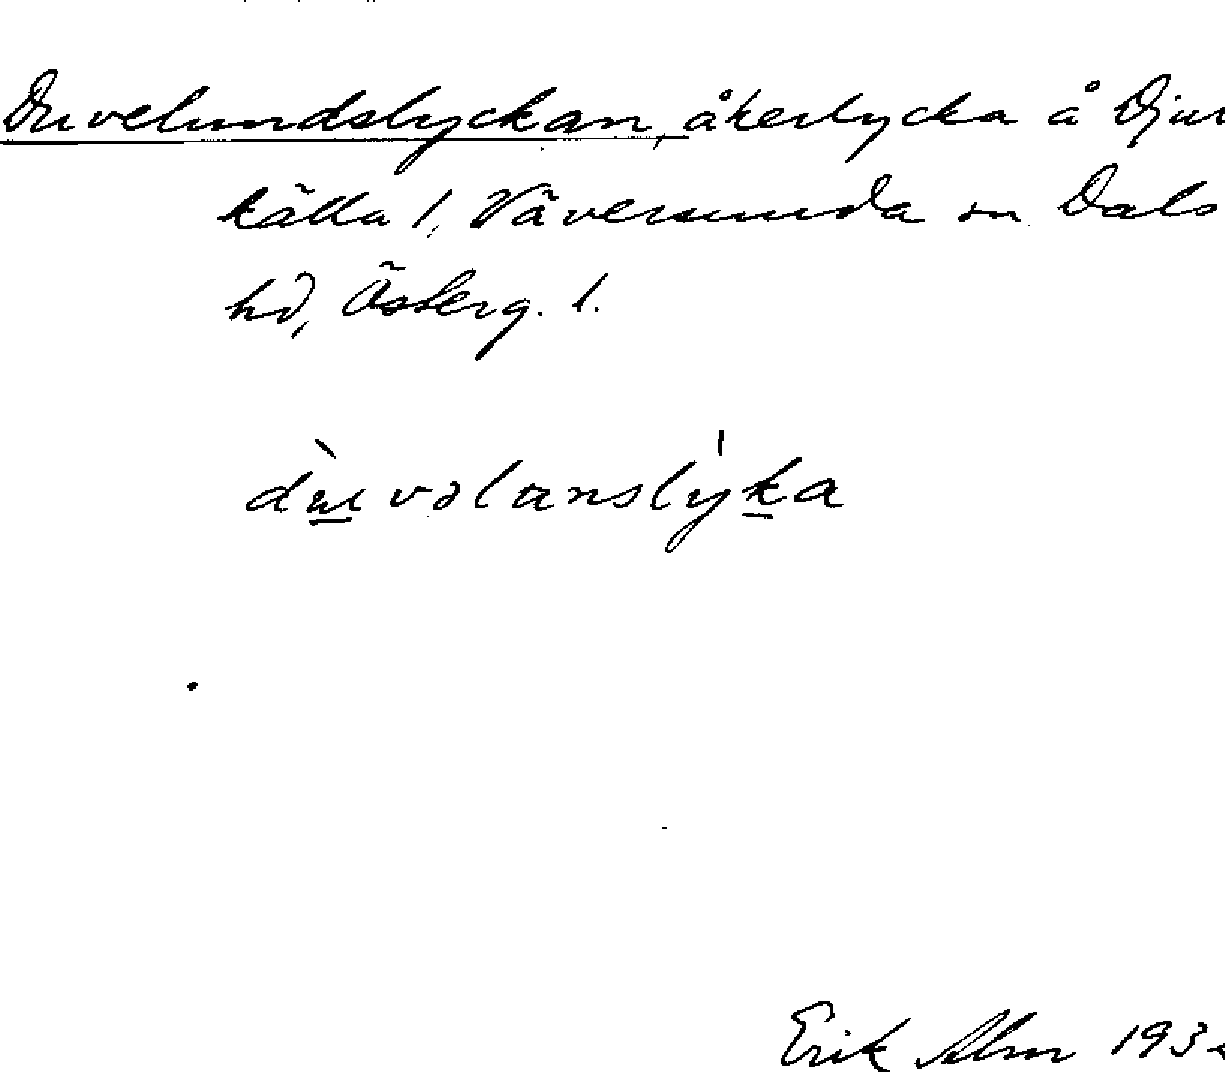 Duvelundslyckan, åkerlycka å Djur
källa 1, Väversunda sn Dals
hd, Österg. l.
dùvəlanslýka
Erik Alm 193